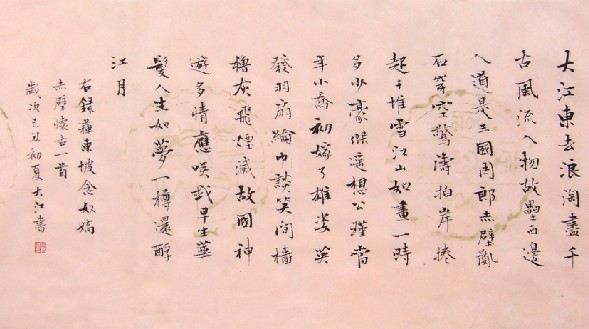 大江東去浪淘盡千
古風流人物故壘西邊
人道是三國周郎赤壁亂
石穿空驚濤拍岸捲
起千堆雪江山如畫一時
多少豪傑遙想公瑾當
年小喬初嫁了雄姿英
發羽扇綸巾談笑間檣
櫓灰飛煙滅故國神
遊多情應咲我早生華
髮人生如夢一樽還酹
江月
右錄蘇東坡念奴嬌
赤壁懷古一首
歲次己丑初夏大江書